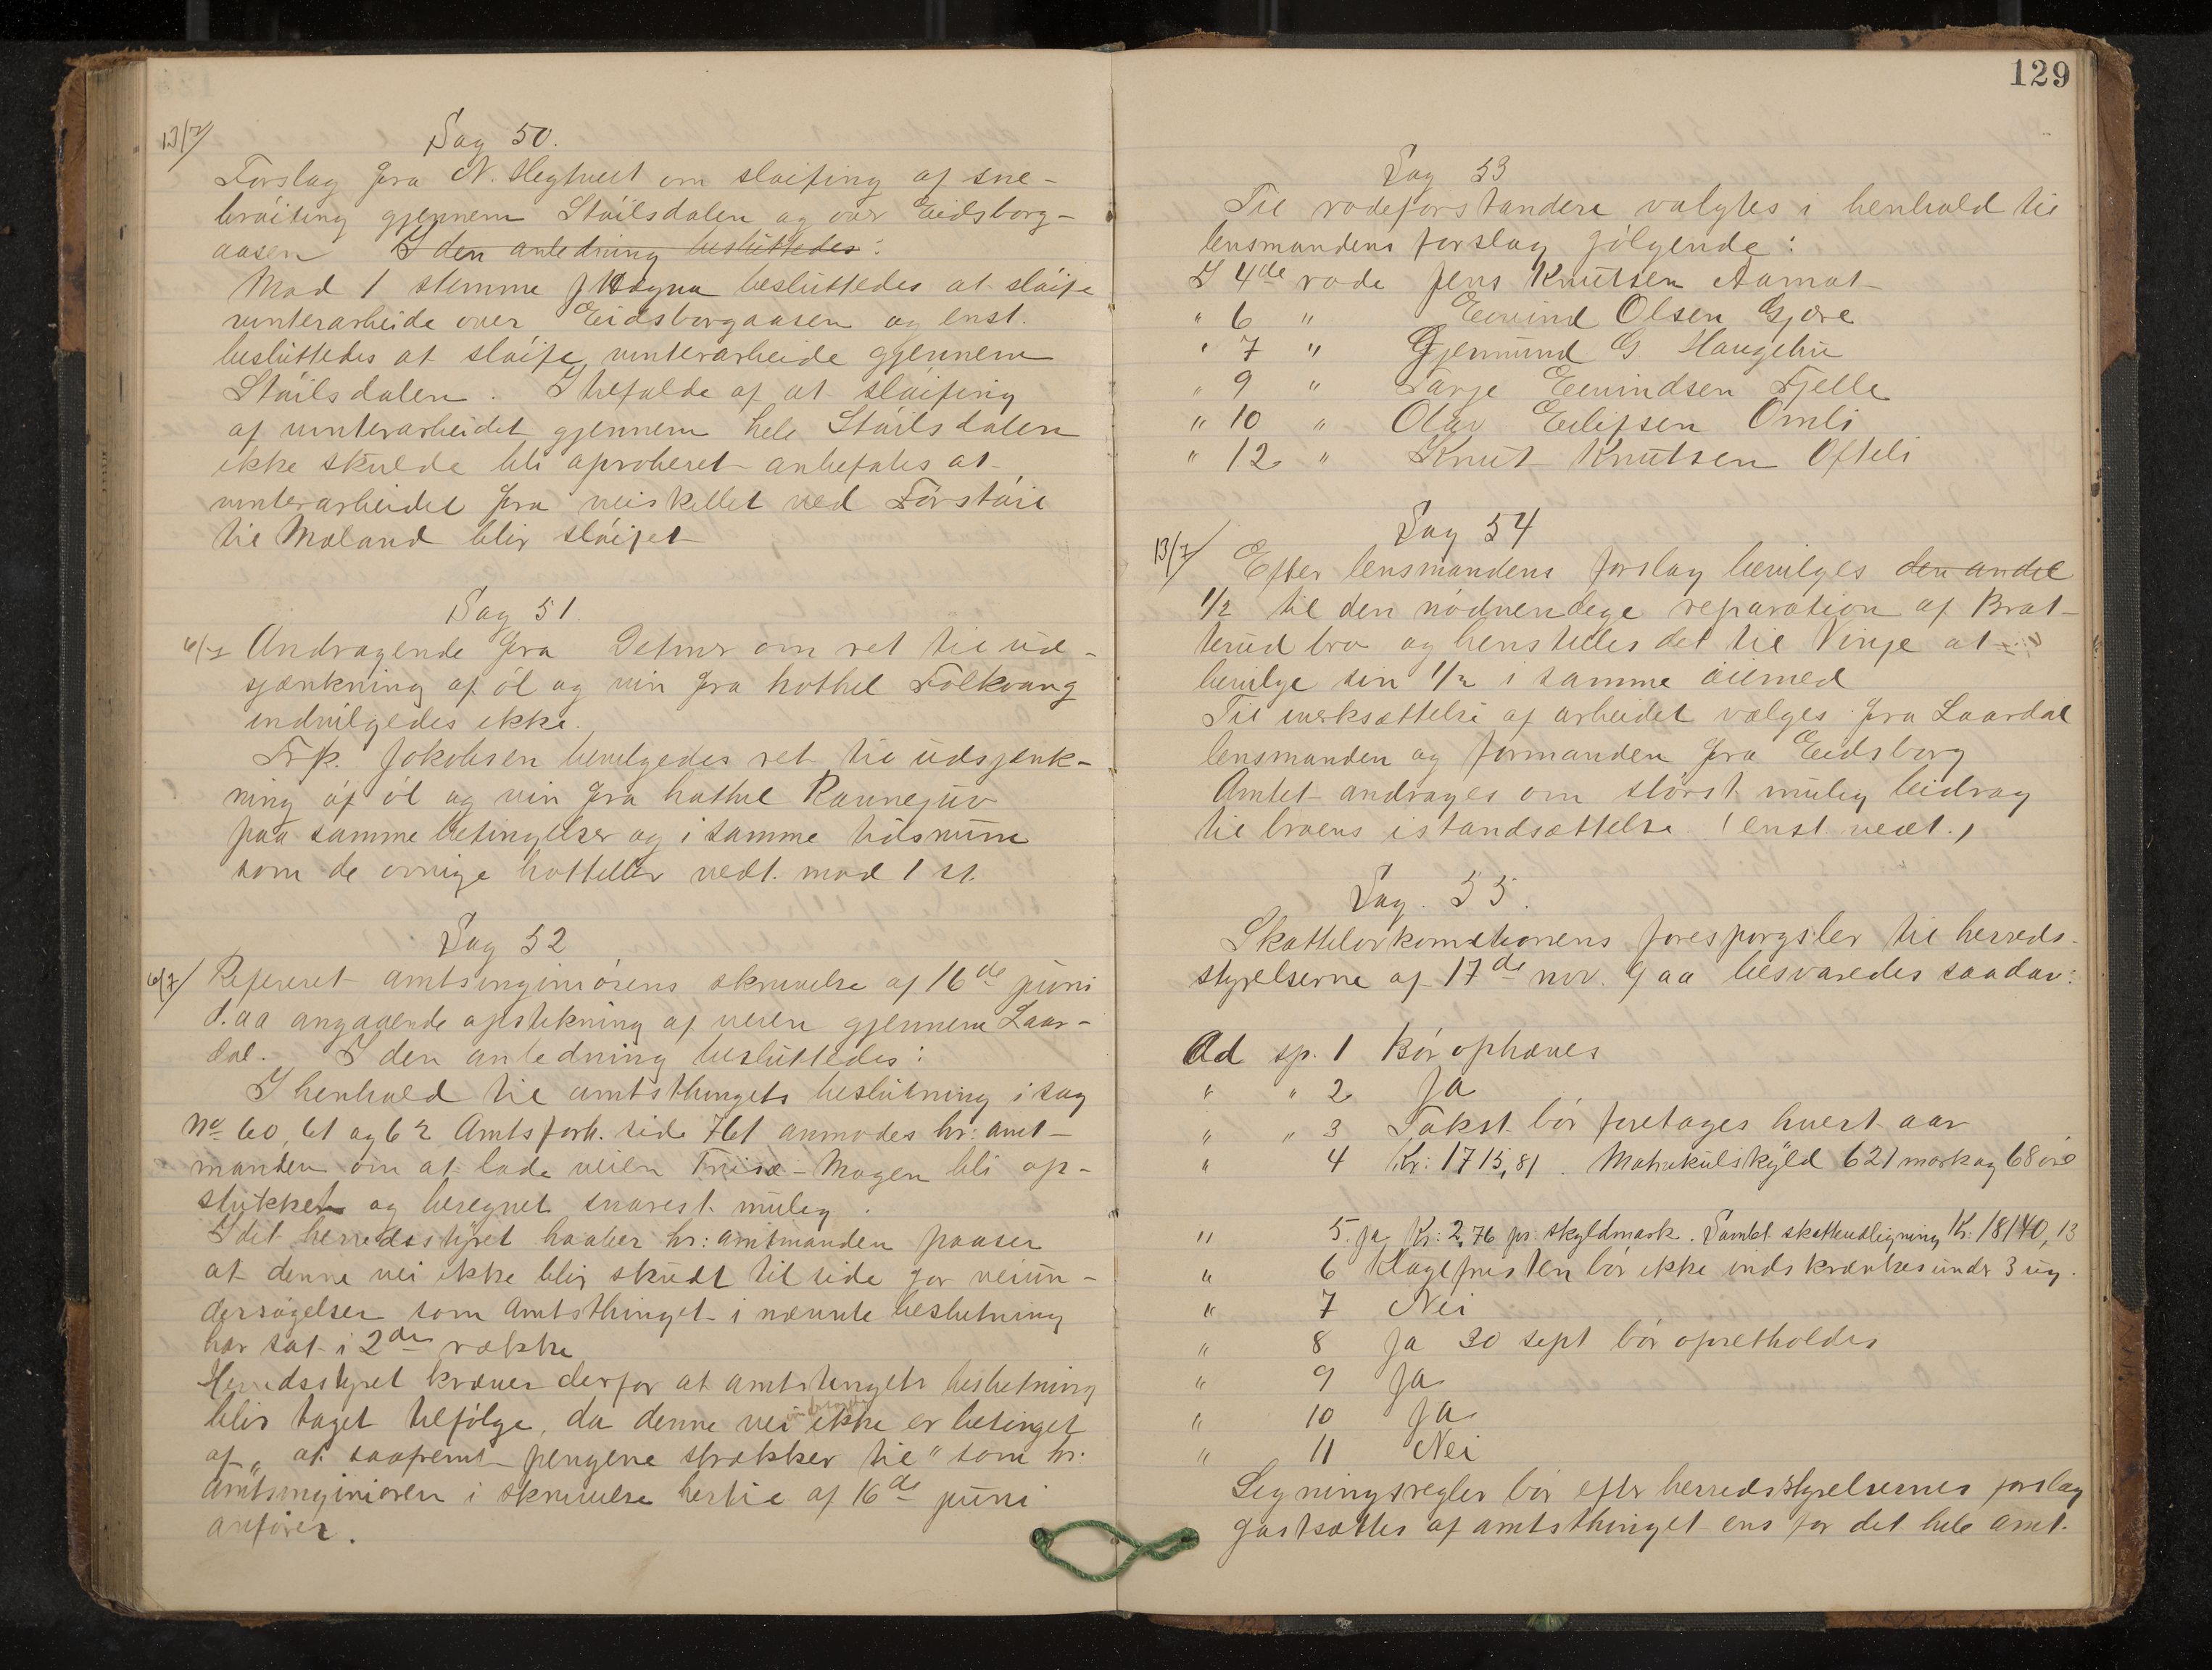 13/7
Sag 50.
Forslag fra N. Hegtveit om sløifing af sne-
brøiting gjennem Støilsdalen og over Eidsborg-
aasen I den anledning besluttedes:
Mod 1 stemme besluttedes at sløife
vinterarbeide over Eidsborgaasen og enst.
besluttedes at sløife vinterarbeide gjennem
Støilsdalen. I tilfælde af at sløifing
af vinterarbeidet gjennem hele Støilsdalen
ikke skulde bli aproberet anbefales at
vinterarbeidet fra veiskillet ved Førstøil
til Moland blir sløifet
Sag 51.
6/7 Andragende fra om ret til ud-
sjænkning af øl og vin fra hothel Folkvang
indvilgedes ikke.
Frk. Jakobsen bevilgedes ret til udsjenk-
ning af øl og vin fra hothel Ravnejuv
paa samme betingelser og i samme tidsrum
som de øvrige hotteller vedt. mod 1 st.
Sag 52
6/7 Refereret amtsingeniørens skrivelse af 16de juni
d.aa angaaende opstikning af veien gjennem Laar-
dal. I den anledning besluttedes:
I henhold til amtsthingets beslutning i sag
No 60, 61 og 62 Amtsforh. side 761 anmodes hr: amt-
manden om at lade veien Triset-Mogen bli op-
stukket og beregnet snarest mulig.
Idet herredsstyret haaber hr: amtmanden paaser
at denne vei ikke blir skudt til side for veiun-
dersøgelser som Amtsthinget i nævnte beslutning
har sat i 2den række
Herredsstyret kræver derfor at amtstingets beslutning
blir taget tilfølge, da denne vei ikke er betinget
af „at saafremt pengene strækker til" som hr:
Amtsingeniøren i skrivelse hertil af 16de juni
anfører.
129
Sag 53
Til rodeforstandere valgtes i henhold til
lensmandens forslag følgende:
I 4de rode Jens Knutsen Aamot
" 6 " Eivind Olsen Gjøre
" 7 " Gjermund G. Haugebu
" 9 " Targe Eivindsen Fjelle
" 10 " Olav Eilifsen Omli
" 12 " Knut Knutsen Ofteli
Sag 54
13/7 Efter lensmandens forslag bevilges den andel
1/2 til den nødvendige reparation af Brat-
terud bro og henstilles det til Vinje at
bevilge sin 1/2 i samme øiemed
Til iverksættelse af arbeidet vælges fra Laardal
lensmanden og formanden fra Eidsborg
Amtet andrages om størst mulig bidrag
til broens istandsættelse (enst. vedt.)
Sag. 55.
Skattelovkomitionens forespørgsler til herreds-
styrelserne af 17de nov. f aa besvaredes saadan:
Ad sp. 1 Bør ophæves
" " 2 Ja
" " 3 Takst bør foretages hvert aar
" 4 Kr: 1715,81. Matrikulskyld 621 mark og 68 øre
" 5. ja Kr: 2,76 pr: skyldmark. Samlet skatteudligning Kr. 18140,13
" 6 Klagefristen bør ikke indskrænkes under 3 ug.
" 7 Nei
" 8 Ja 30 sept bør opretholdes
" 9 Ja
" 10 Ja
" 11 Nei
Ligningsregler bør efter herredsstyrelsernes forslag
fastsættes af amtsthinget ens for det hele amt.